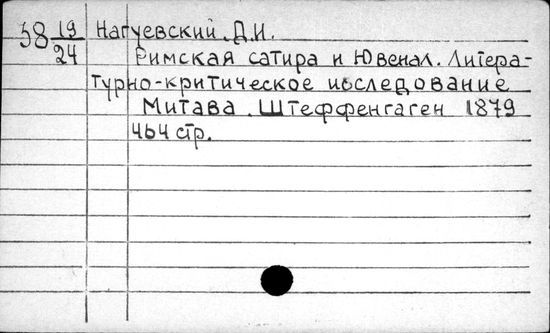 38 19/24 Нагуевский. Д.И.
Римская сатира и Ювенал. Литера-
турно-критическое исследование
Митава. Штеффенгаген 1879
464 стр.